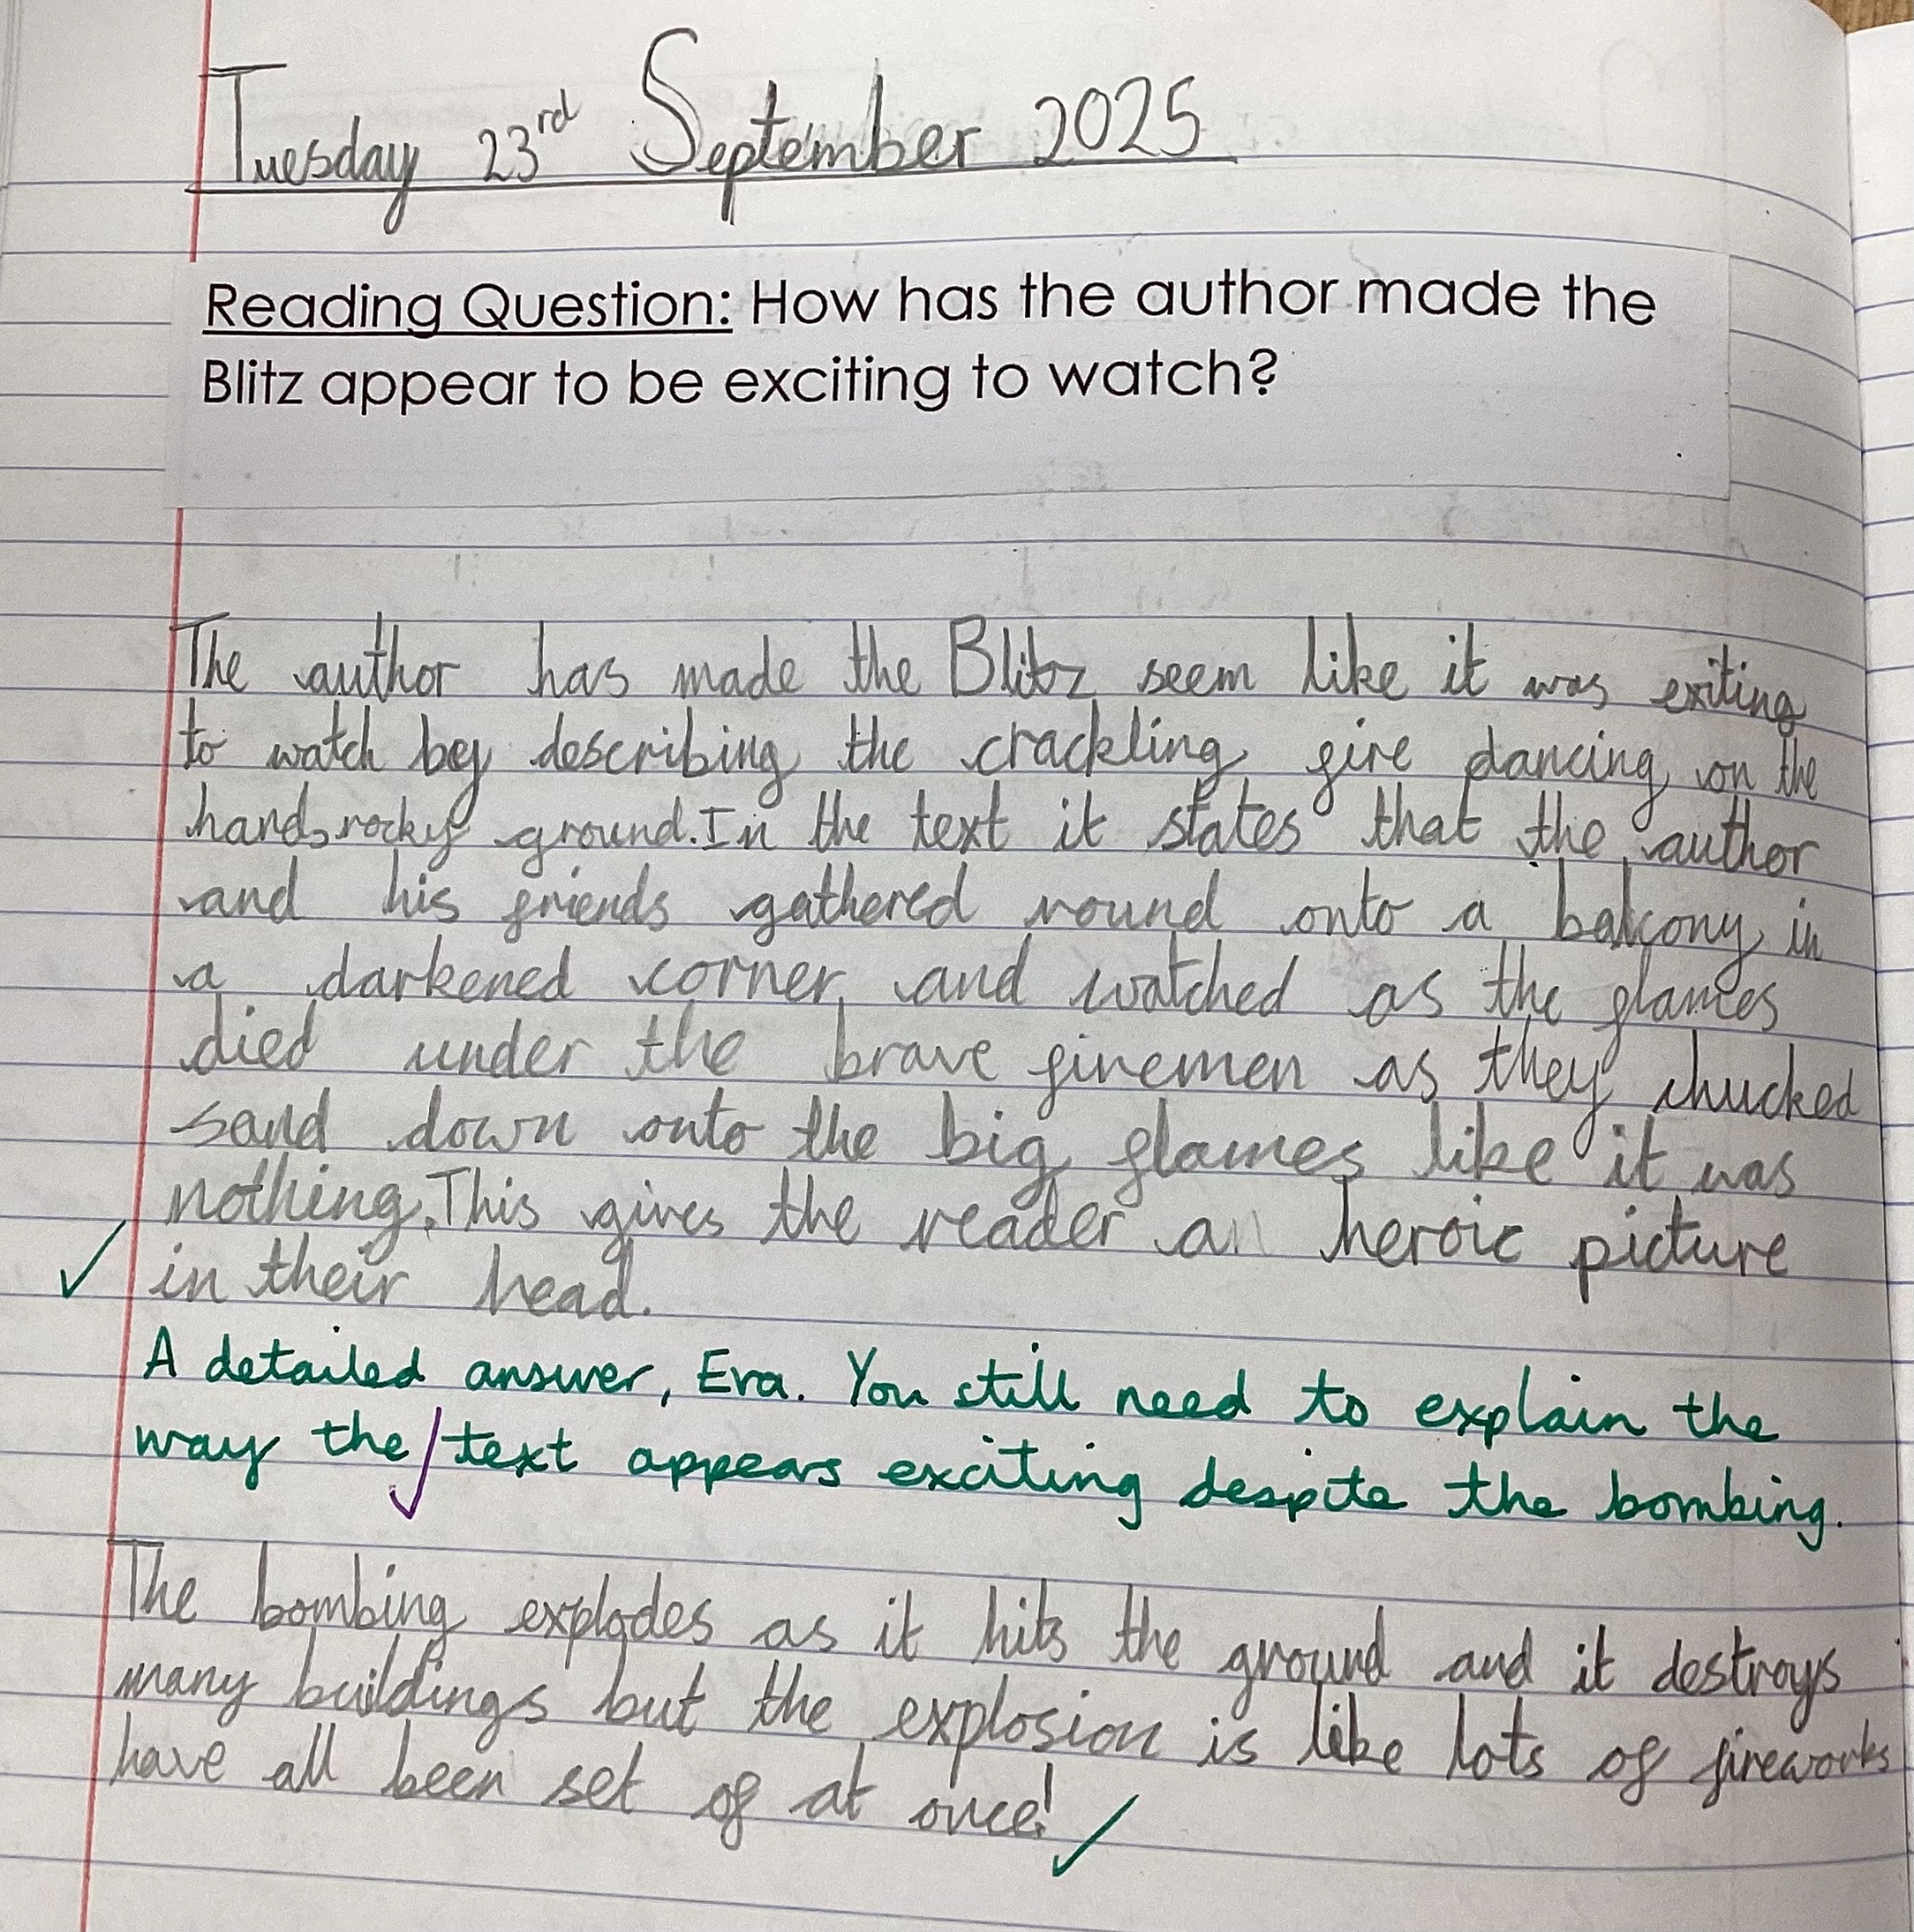 Tuesday 23rd September 2025
Reading Question: How has the author made the
Blitz appear to be exciting to watch?
The author has made the Blitz seem like it was exiting
to watch bey describing the crackling fire dancing on the
hard, rocky ground. In the text it states that the author
and his friends gathered round onto a balcony in
a darkened corner and watched as the flames
died under the brave firemen as they chucked
sand down onto the big flames like it was
nothing. This gives the reader a heroic picture
in their head.
A detailed answer, Eva. You still need to explain the
way the text appears exciting despite the bombing.
The bombing explodes as it hits the ground and it destroys
many buildings but the explosion is like lots of fireworks
have all been set of at once!